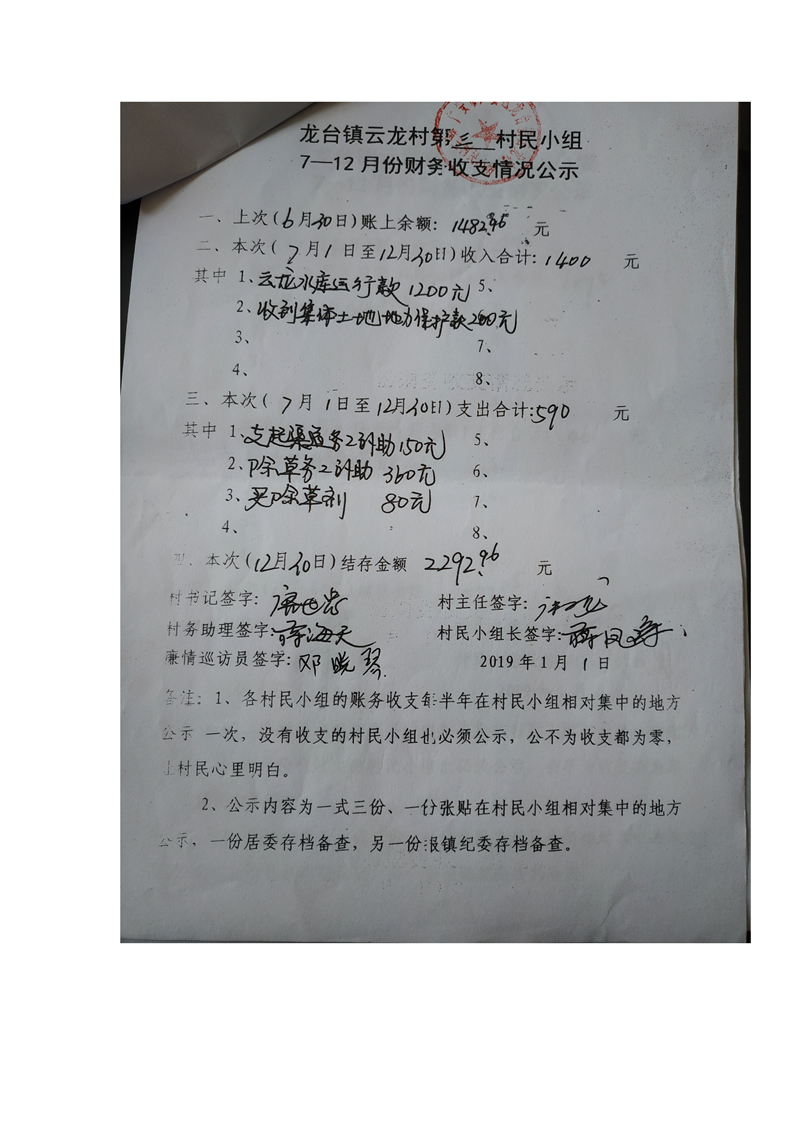 龙台镇云龙村第三村民小组
7—12月份财务收支情况公示
一、上次(6月30日)账上余额：1482.96元
二、本次(7月1日至12月30日)收入合计：1400元
其中 1、云龙水库运行款1200元 5、
2、收到集体土地地力保护款200元
3、 7、
4、 8、
三、本次(7月1日至12月30日)支出合计：590元
其中 1、支起渠道务工补助150元 5、
2、除草务工补助 360元 6、
3、买除草剂 80元 7、
4、 8、
四、本次(12月30日)结存金额 2292.96元
村书记签字： 村主任签字：
村务助理签字：蒋海天 村民小组长签字：
廉情巡访员签字：邓晓琴 2019年1月1日
备注：1、各村民小组的账务收支每半年在村民小组相对集中的地方
公示一次，没有收支的村民小组也必须公示，公不为收支都为零，
让村民心里明白。
2、公示内容为一式三份、一份张贴在村民小组相对集中的地方
公示，一份居委存档备查，另一份报镇纪委存档备查。